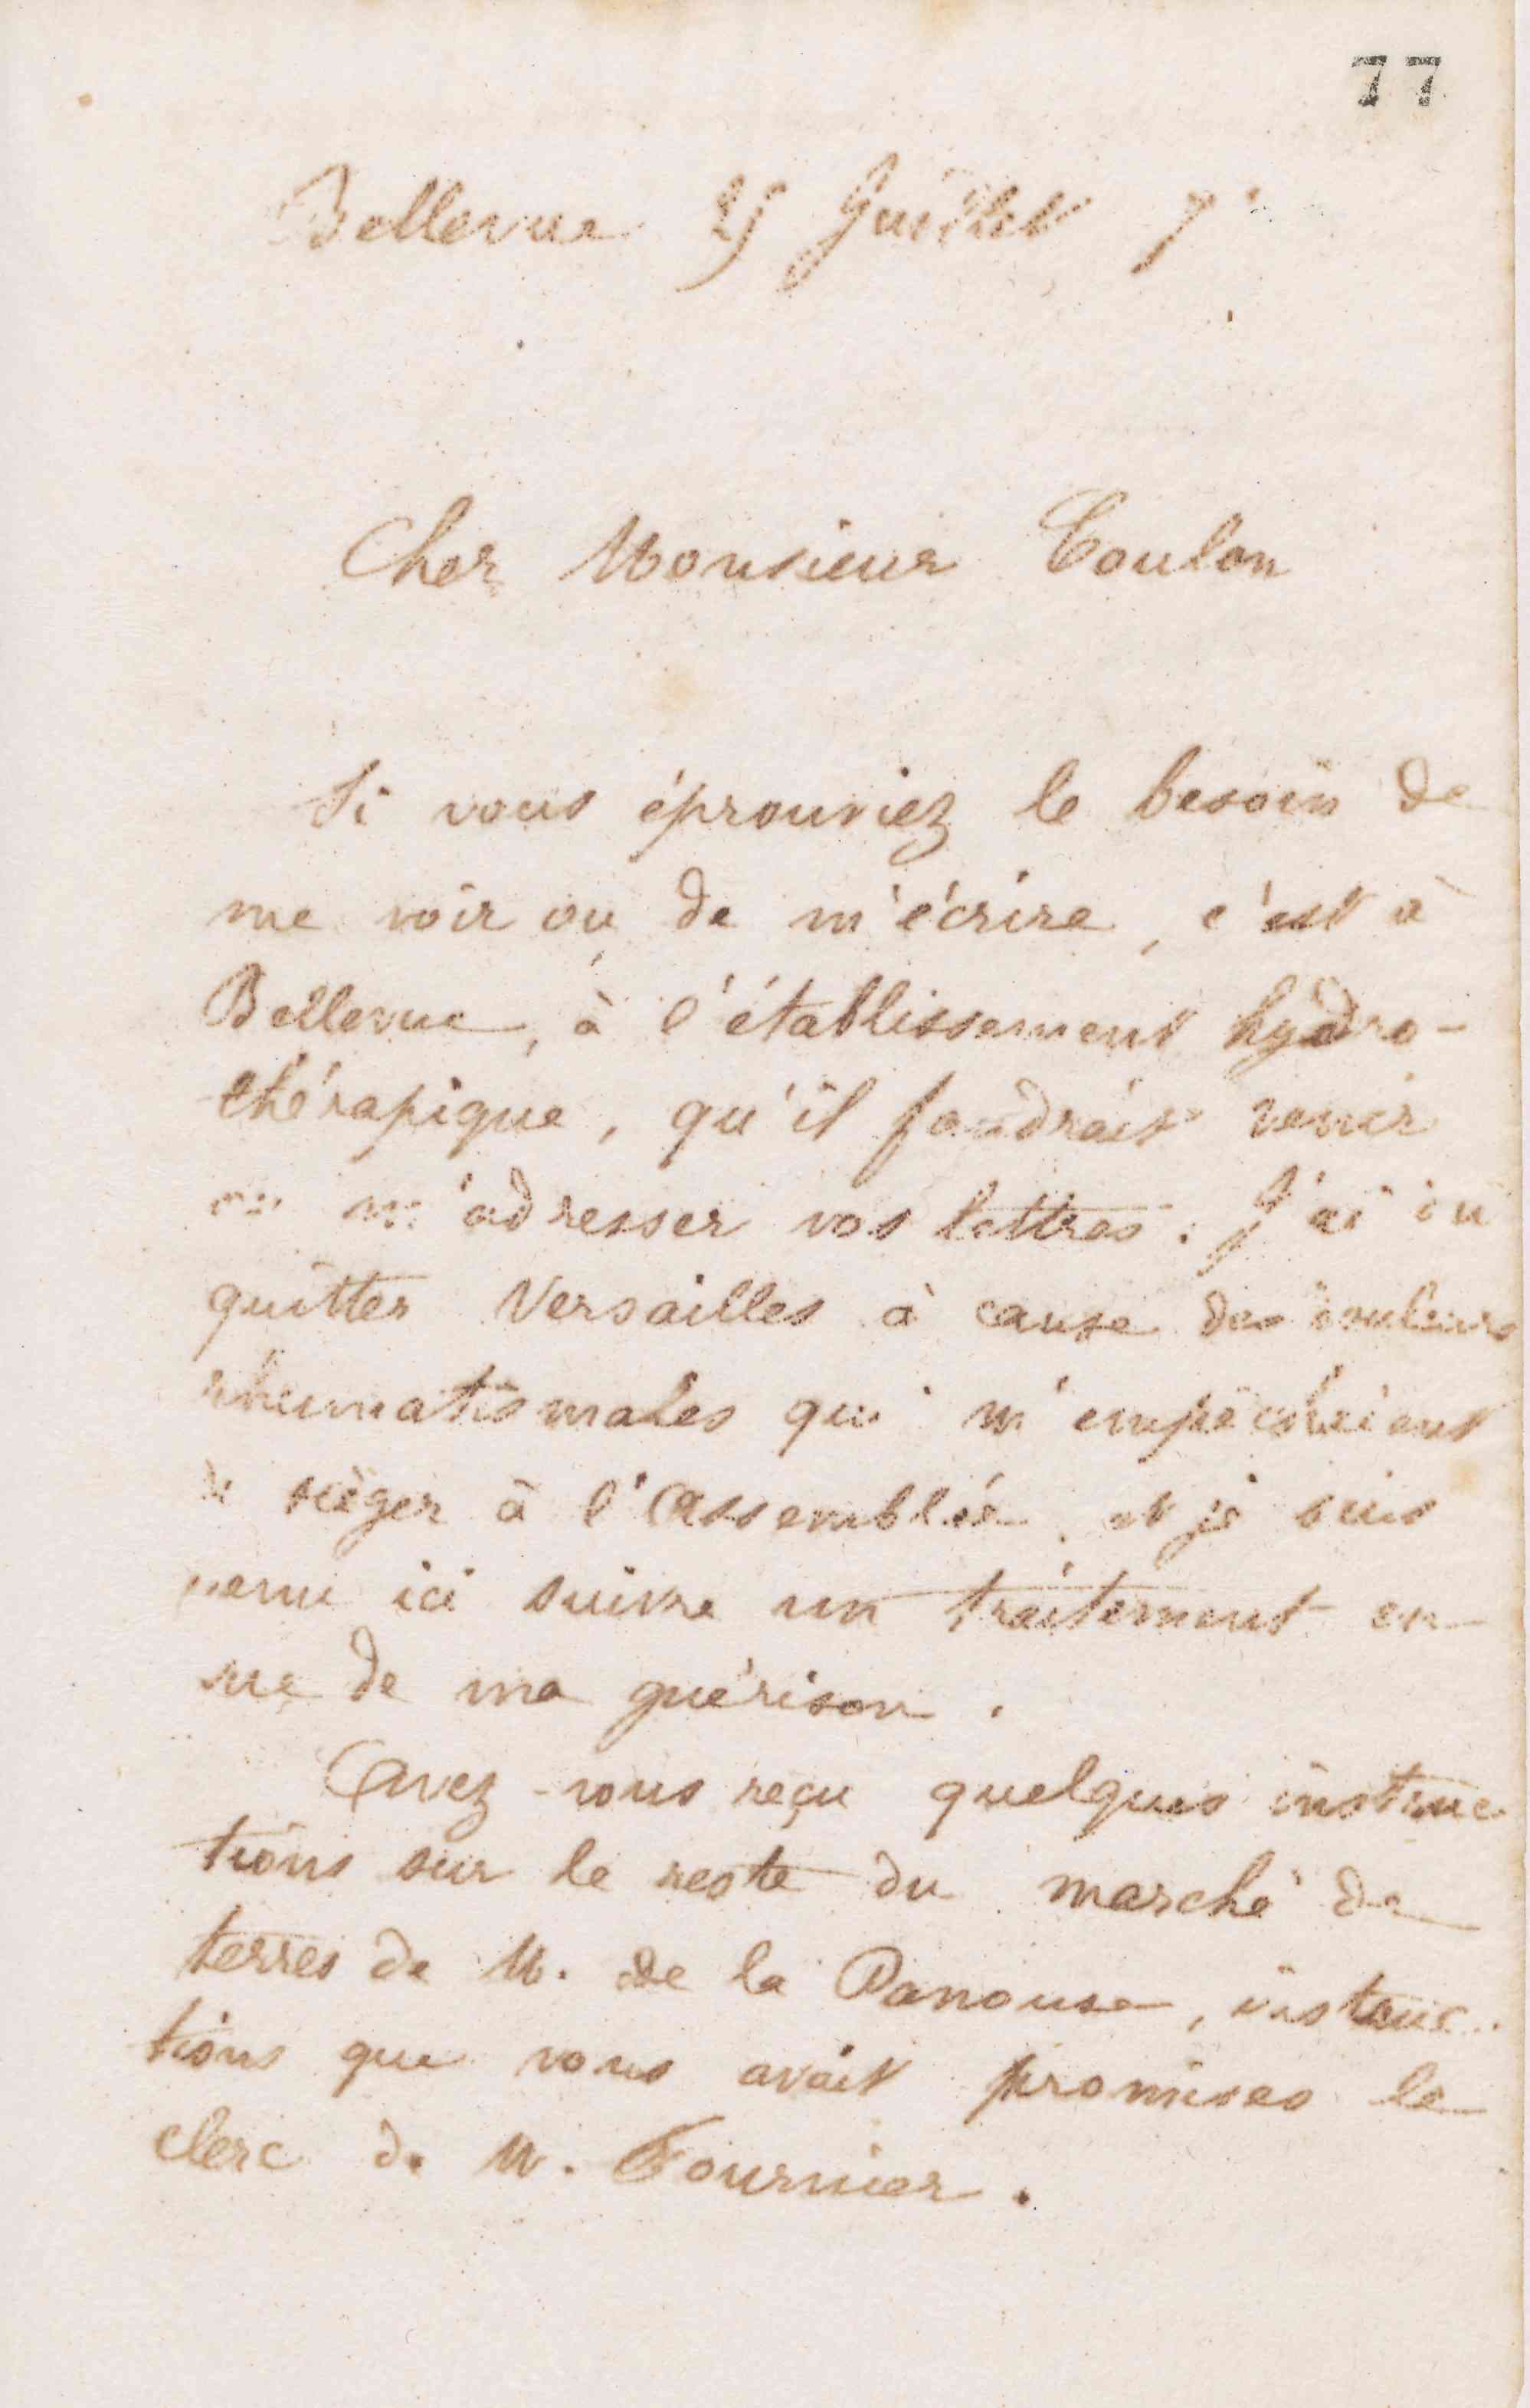 77
Bellevue 25 Juillet 7
Cher Monsieur Coulon
Si vous éprouviez le besoin de
me voir ou de m'écrire, c'est à
Bellevue, à l'établissement hydro-
thérapique, qu'il faudrait venir
ou m'adresser vos lettres. J'ai dû
quitter Versailles à cause des douleurs
rhumatismales qui m'empêchaient
de siéger à l'Assemblée, et je suis
venu ici suivre un traitement en
vue de ma guérison.
Avez-vous reçu quelques instruc
tions sur le reste du marché de
terres de M. de la Panouse, instruc-
tions que vous avait promises le
clerc de M. Fournier.